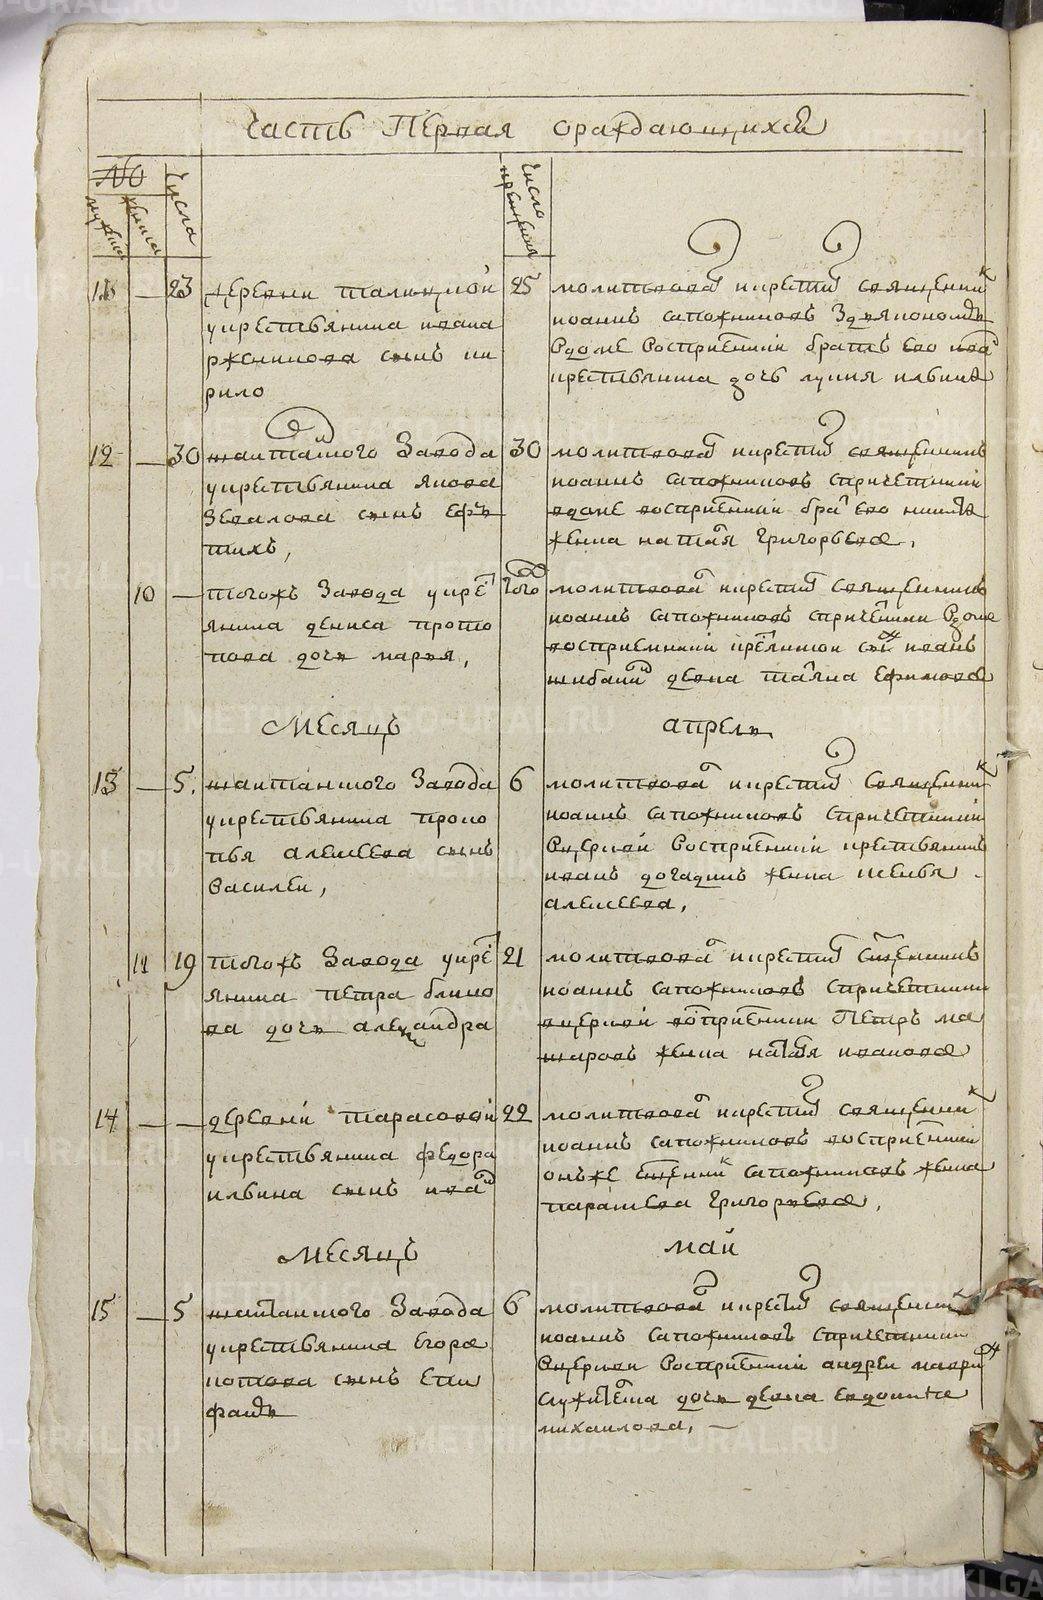 Часть Первая ораждающихся
№
Числа
Число крещения
мужеска
женска
11 — 23 деревни Талицкой
у крестьянина ивана
рженикова сынъ ки
рило
25 молитвовалъ и крестилъ священникъ
иоаннъ сапожниковъ
в доме восприемники братъ ево иванъ
крестьянина дочь лукия ильина
12 — 30 шайтанского завода
у крестьянина якова
зевалова сынъ евъ
тихъ,
30 молитвовалъ и крестилъ священникъ
иоаннъ сапожниковъ с причетники
в доме восприемники братъ ево никита
жена наталя григорьева,
10 — тогожъ завода у кресть
янина дениса прото
попова дочь марья,
того молитвовалъ и крестилъ священникъ
иоаннъ сапожниковъ с причетники в доме
восприемники сынъ иванъ
девка татияна ефимова
Месяцъ апрель
13 — 5. шайтанского завода
у крестьянина проко
пья алексеева сынъ
василеи,
6 молитвовалъ и крестилъ священникъ
иоаннъ сапожниковъ с причетники
в церкви восприемники крестьянинъ
иванъ догадинъ жена ксенья
алексеева,
11 19 тогожъ завода у кресть
янина петра блино
ва дочь александра
21 молитвовалъ и крестилъ священникъ
иоаннъ сапожниковъ с причетники
в церкви восприемники петръ ма
шаровъ жена наталя иванова
14 — — деревни тарасовой
у крестьянина федора
ильина сынъ иванъ
22 молитвовалъ и крестилъ священникъ
иоаннъ сапожниковъ восприемники
онъже священникъ сапожниковъ жена
парасковя григорьева,
Месяцъ май
15 — 5 шайтанского завода
у крестьянина егора
потова сынъ епи
фанъ
6 молитвовалъ и крестилъ священникъ
иоаннъ сапожниковъ с причетники
в церкви восприемники андреи
служителя дочь девка евдокия
михаилова, —
METRIKI.GASO-URAL.RU